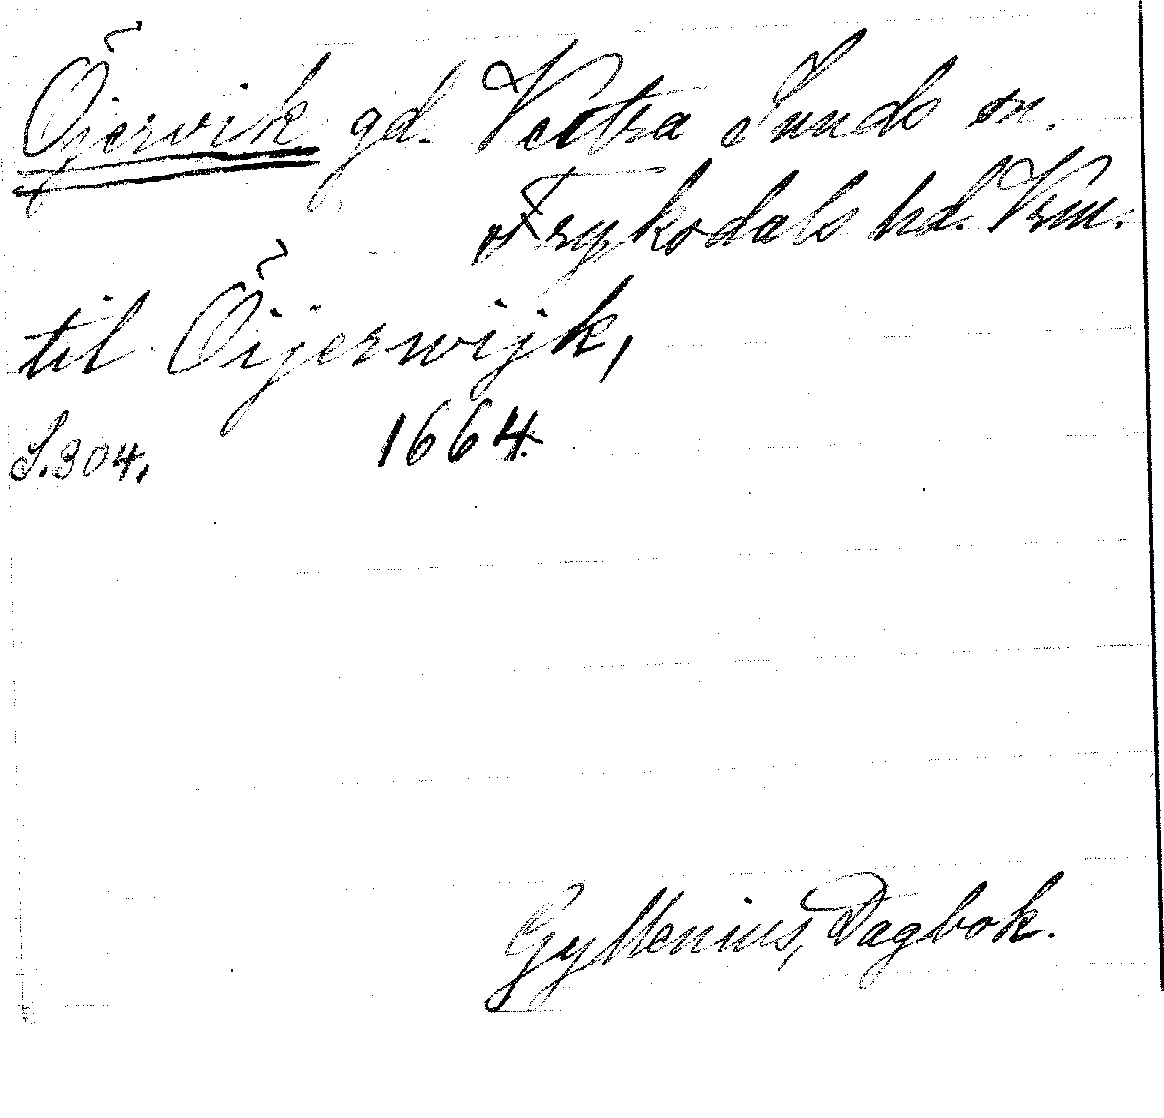 Öjervik gd. Västra Sunds sn.
Fryksdals hd. Vrm.
til Öijerwijk,
S.304. 1664.
Gyllenius, Dagbok.